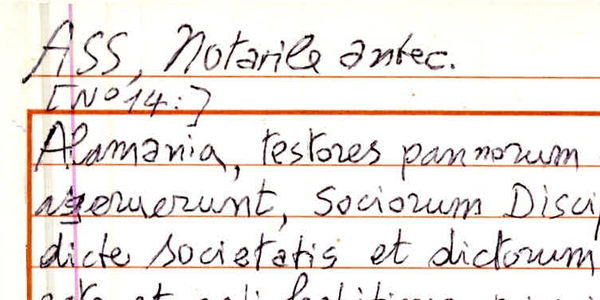 ASS, Notarile antec.
[Nº 14:]
Alamania, testores pannorum
asseruerunt, Sociorum Disci
dicte societatis et dictorum
et